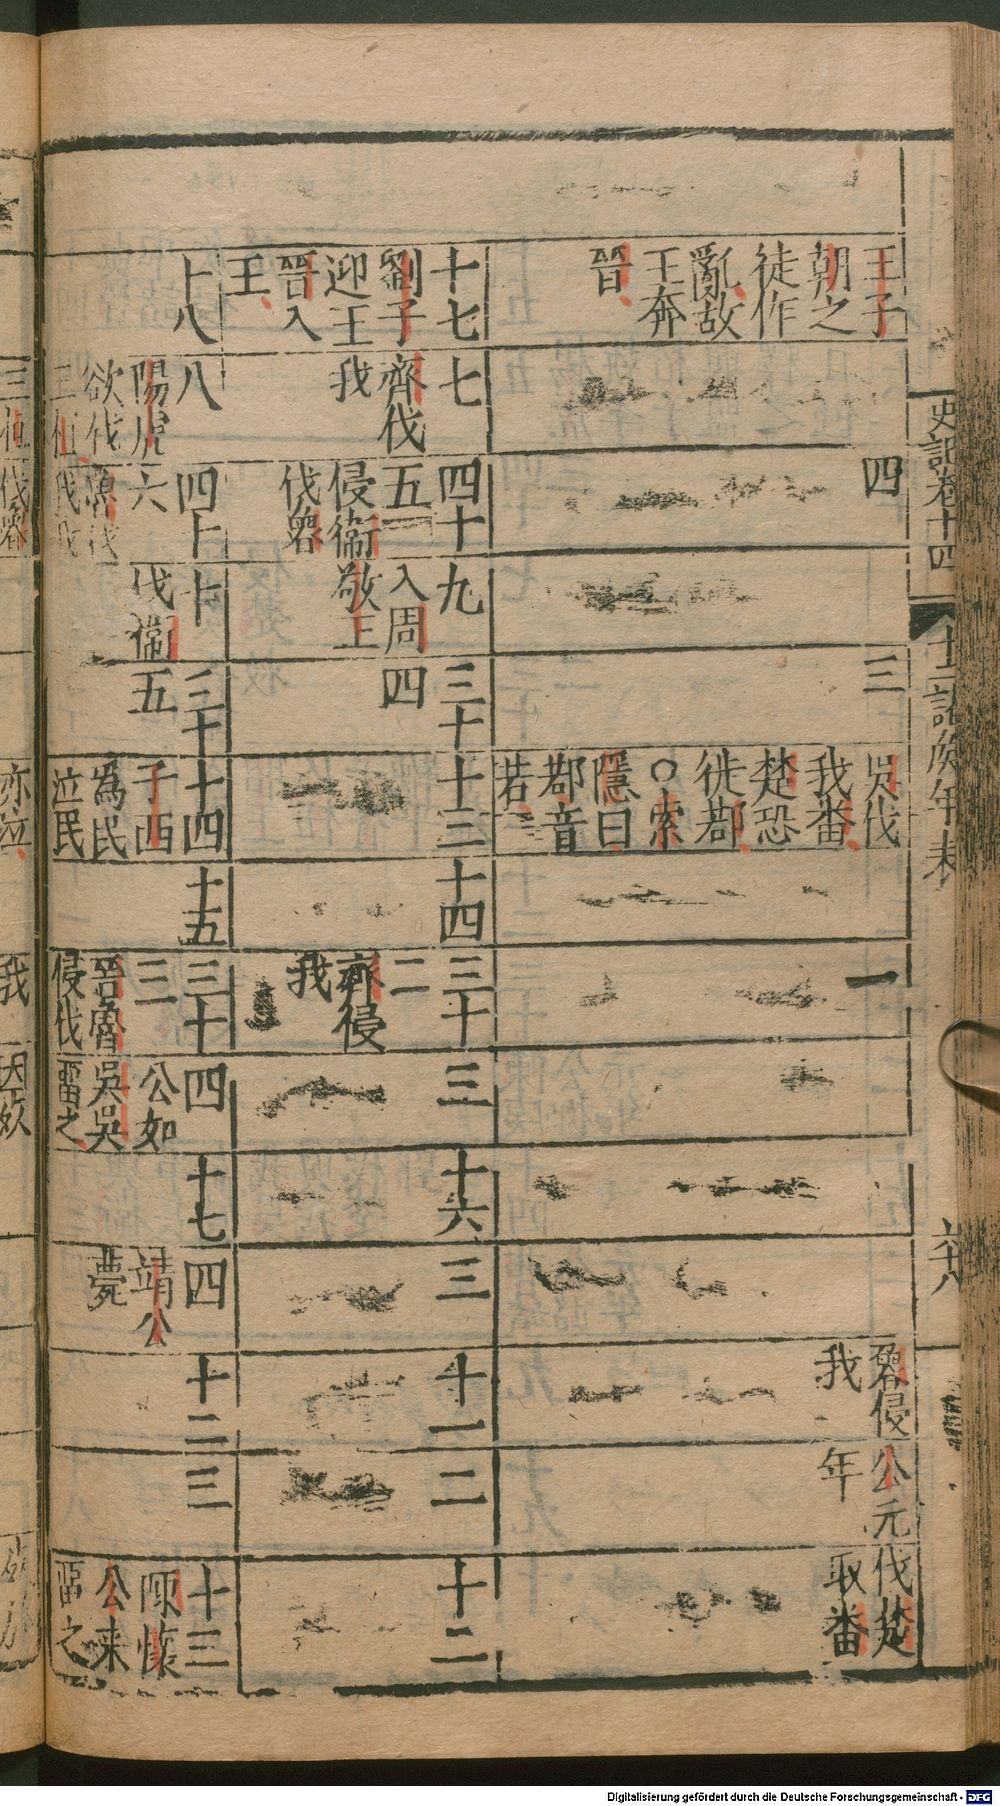 史記卷十四
十二諸侯年表
王子
朝之
徒作
亂故
王奔
晉
四
三
吳伐
我番
楚恐
徙鄀
○索
隱曰
鄀音
若
一
魯侵
我
公元
年
伐楚
取番
十七
劉子
迎王
晉入
王
七
齊伐
我
四十
五
侵衞
伐魯
九
入周
敬王
三十
四
十三
十四
三十
二
齊侵
我
三
十六
三
十一
二
十二
十八
八
陽虎
欲伐
三桓
四十
六
魯伐
我我
十
伐衞
三十
五
十四
子西
爲民
泣民
十五
三十
三
晉魯
侵伐
四
公如
吳吳
畱之
十七
四
靖公
薨
十二
三
十三
陳懷
公来
畱之
三桓
伐魯
亦泣
我
Digitalisierung gefördert durch die Deutsche Forschungsgemeinschaft - DFG